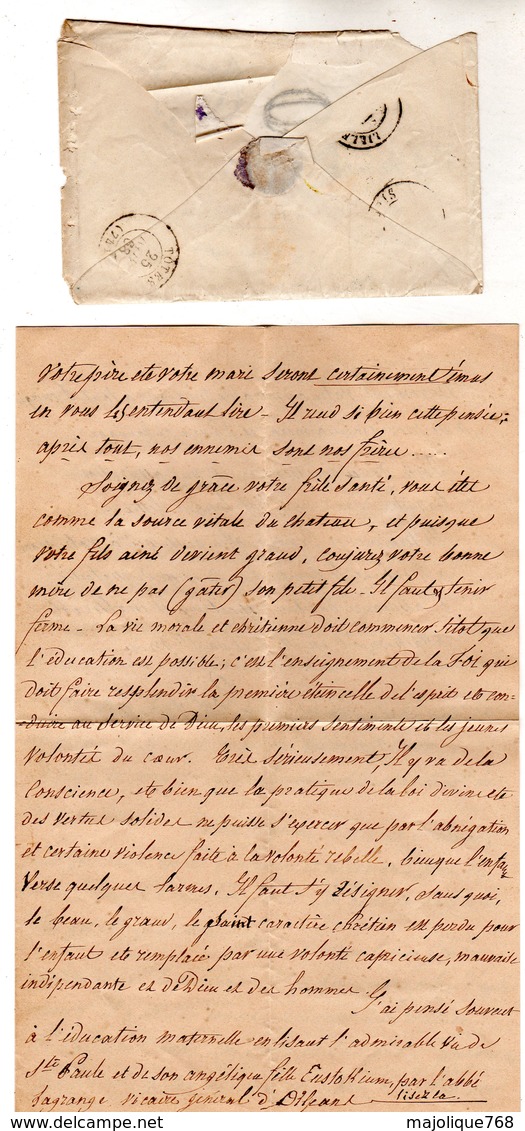 LILLE
TOTES
25
(74)
votre père et votre mari seront certainement émus
en vous les entendant lire - Il rend si bien cette pensée:
après tout, nos ennemis sont nos frères .....
Soignez de grâce votre frêle santé, vous êtes
comme la source vitale du chateau, et puisque
votre fils ainé devient grand, conjurez votre bonne
mère de ne pas (gâter) son petit fils - Il faut tenir
ferme - La vie morale et chrétienne doit commencer sitot que
l'éducation est possible; c'est l'enseignement de la Foi qui
doit faire resplendir la première étincelle de l'esprit et con-
duire au service de Dieu, les premiers sentiments et les jeunes
volontés du cœur. Très sérieusement, Il y va de la
Conscience, et bien que la pratique de la loi divine et
des vertus solides ne puisse s'exercer que par l'abnégation
et certaine violence faite à la volonté rebelle, bien que l'enfant
verse quelques larmes, Il faut s'y résigner, sans quoi,
le beau, le grand, le saint caractère chrétien est perdu pour
l'enfant et remplacé par une volonté capricieuse, mauvaise
indépendante et de Dieu et des hommes.
J'ai pensé souvent
à l'éducation maternelle en lisant l'admirable vie de
Ste Paule et de son angélique fille Eustokium, par l'abbé
Lagrange, vicaire général d'Orléans lisez la
majolique768
www.delcampe.net